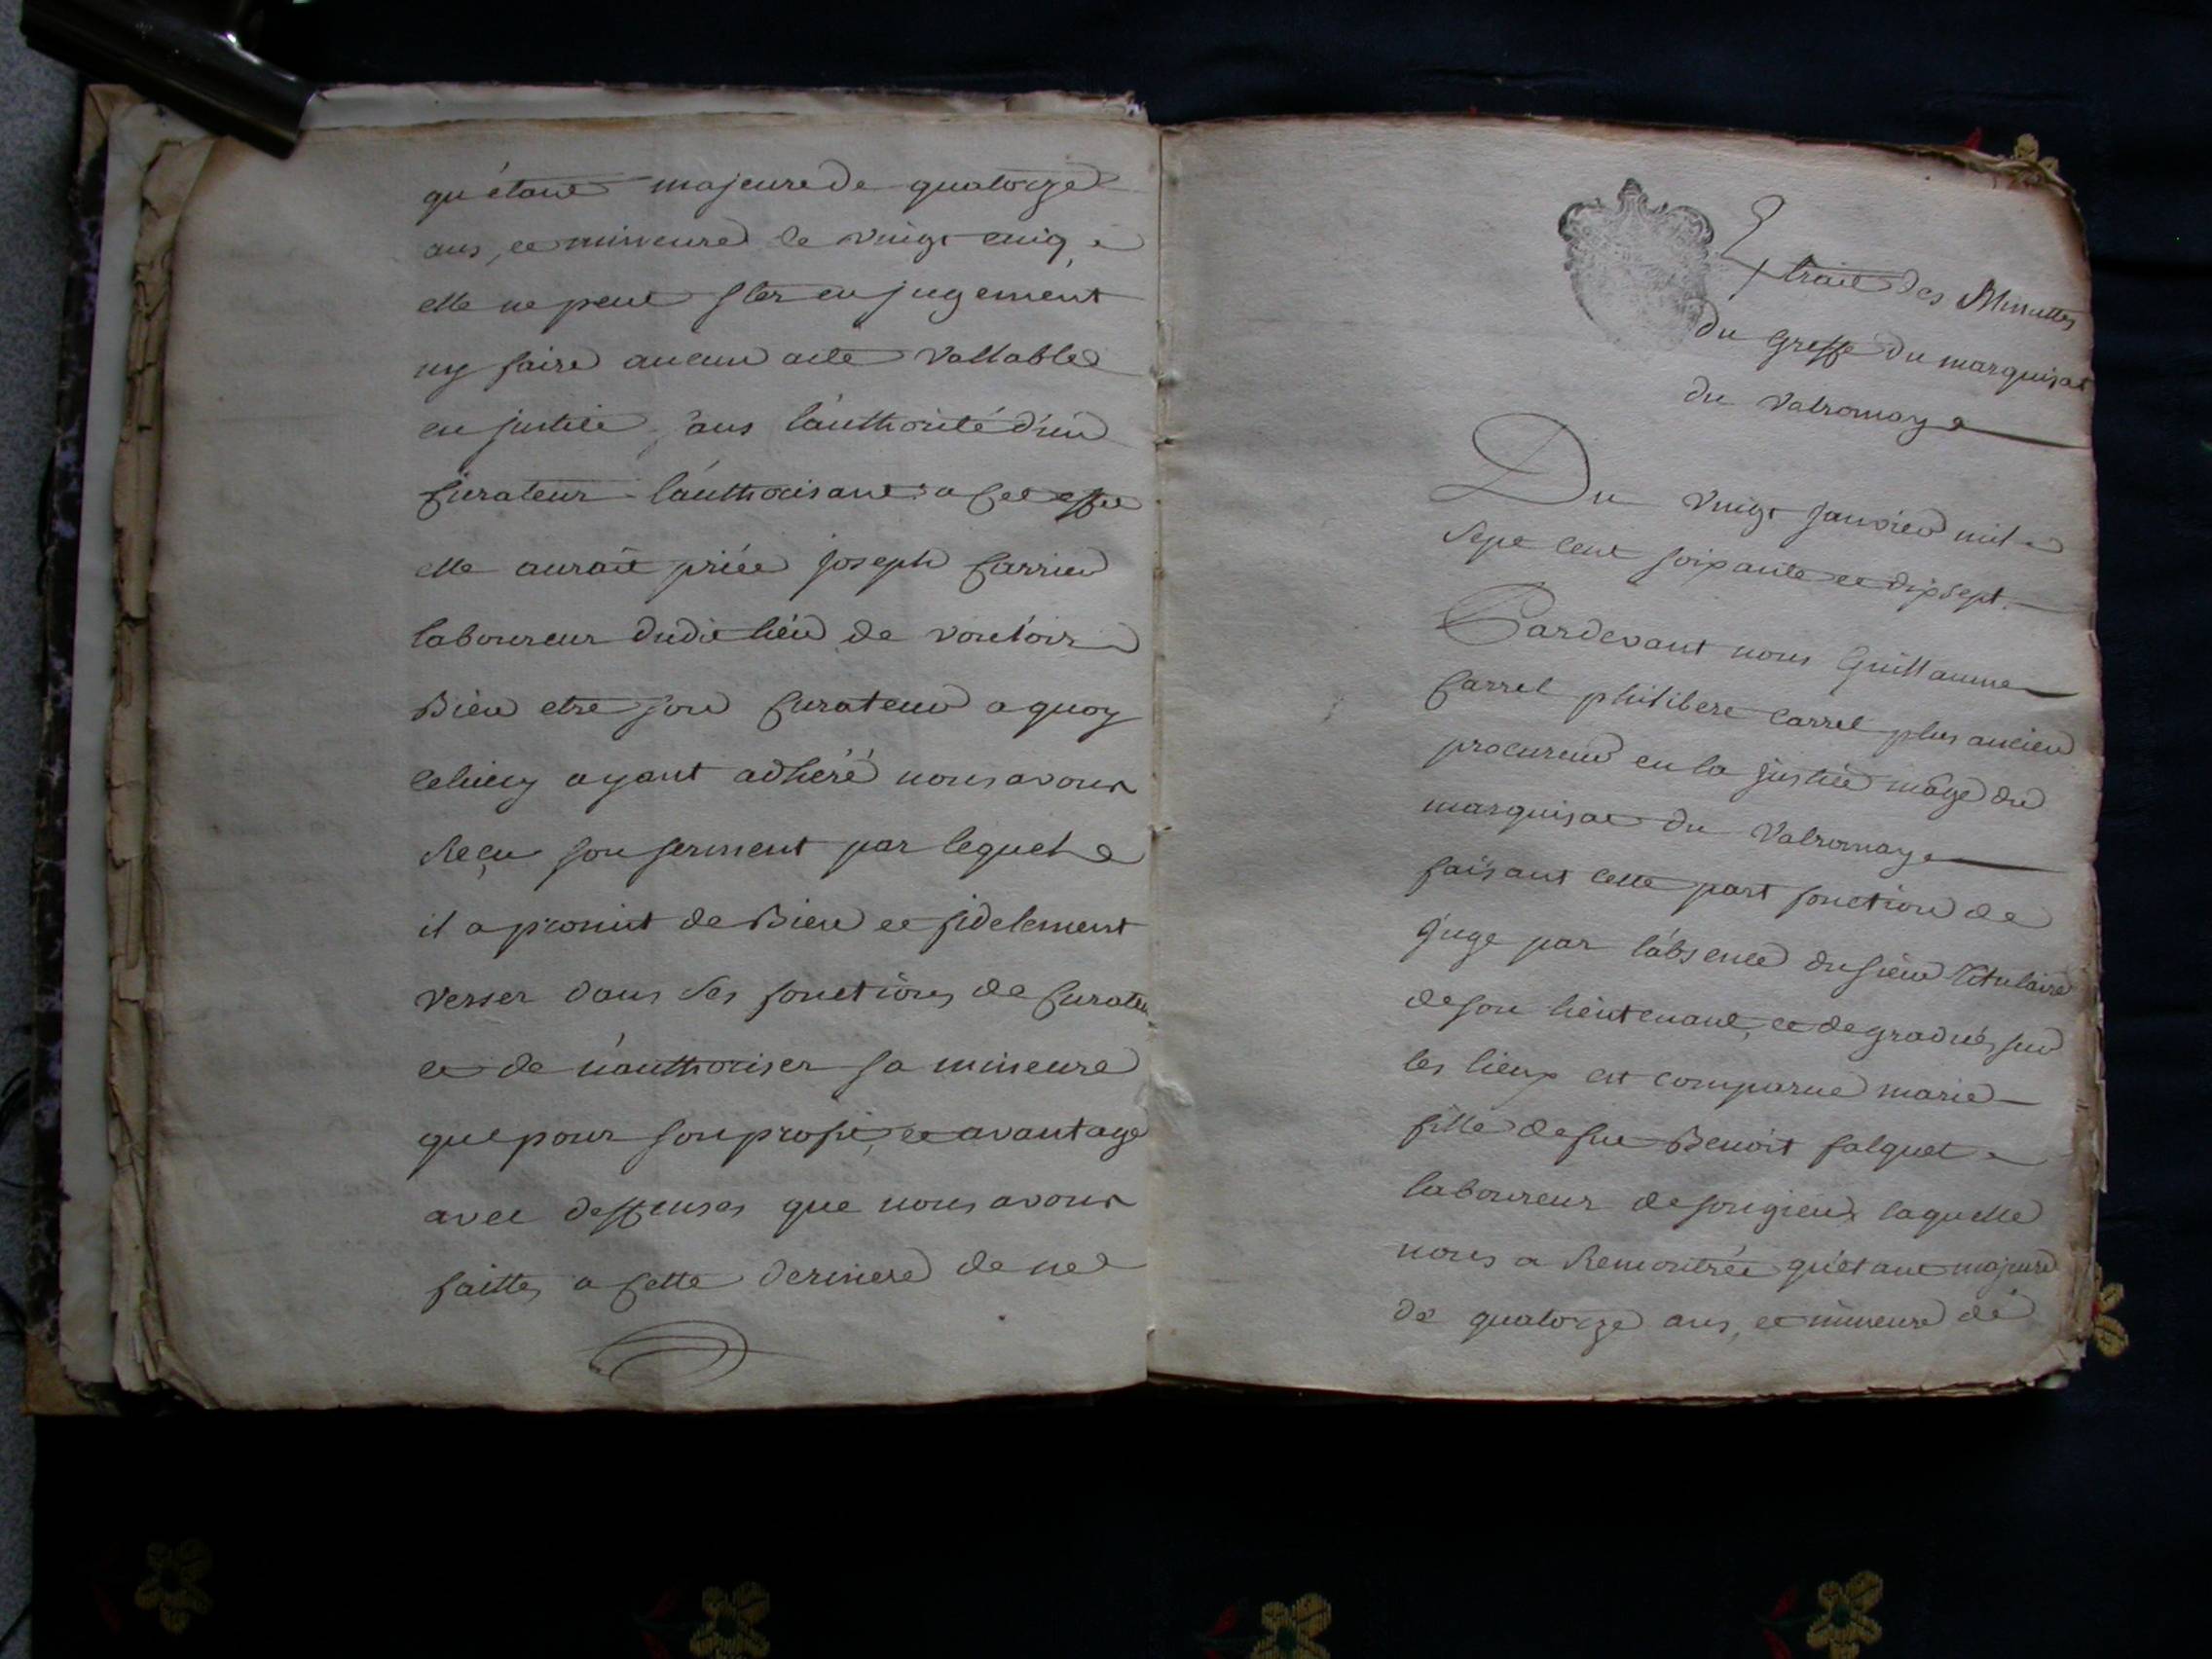 qu'étant majeure de quatorze
ans, et mineure de vingt cinq
elle ne peut ster en jugement
ny faire aucun acte vallable
en justice sans l'authorité d'un
Curateur l'authorisant a Cet effet
elle aurait priée joseph Carrier
laboureur dudit lieu de vouloir
Bien etre son Curateur a quoy
celuicy ayant adhéré nous avons
Reçu son serment par lequel
il a promit de Bien et fidelement
verser dans Ses fonctions de Curateur
et de n'authoriser sa mineure
que pour son profit, et avantage
avec deffenses que nous avons
faittes a Cette derniere de ne
Extrait des Minuttes
du Greffe du marquisat
du Valromay
Du vingt janvier mil
Sept cent soixante et dix sept
Pardevant nous Guillaume
Carrel philibert carrel plus ancien
procureur en la justice mage du
marquisat du Valromay
faisant cette part fonction de
Juge par l'absence du sieur Titulaire
de son lieutenant, et de gradués sur
les lieux est comparue marie
fille de feu Benoit falquet
laboureur de songieux laquelle
nous a Remontrée qu'étant majeure
de quatorze ans, et mineure de